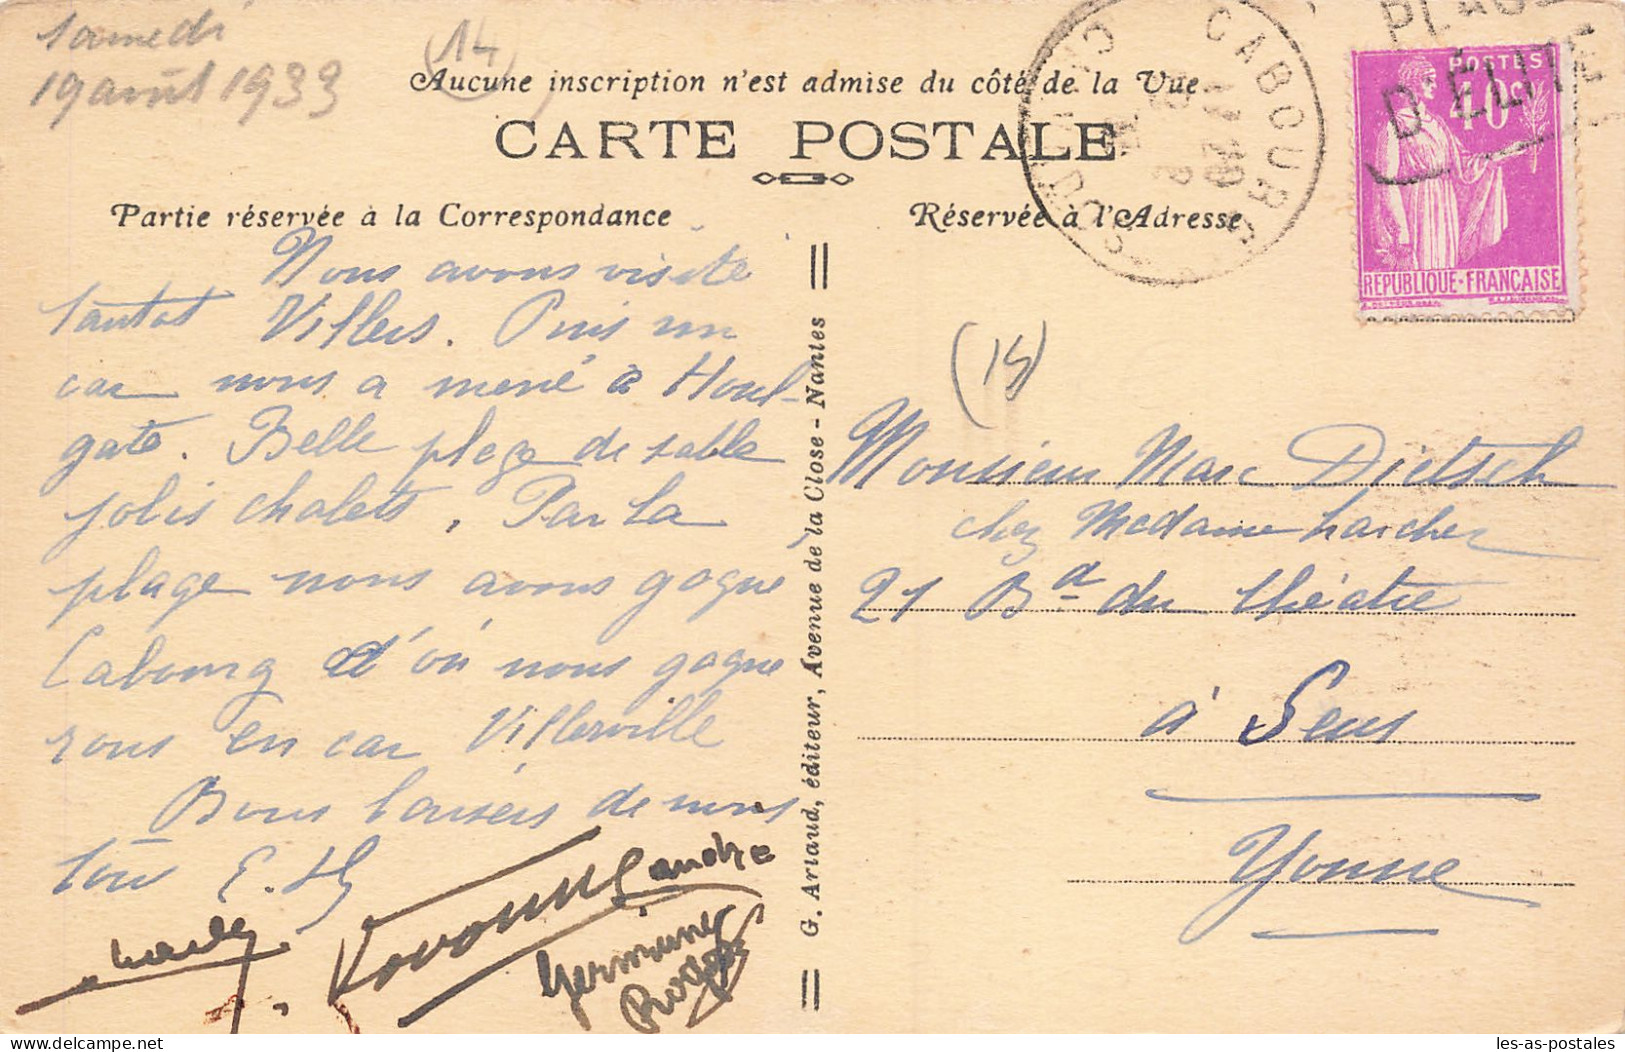 samedi
19 août 1933
(14)
Aucune inscription n'est admise du côté de la Vue
CARTE POSTALE
Partie réservée à la Correspondance
Réservée à l'Adresse
CABOURG
CALVADOS
PLAGE
D'ÉLITE
POSTES
40c
REPUBLIQUE-FRANÇAISE
Nous avons visité
tantot Villers. Puis un
car nous a mené à Houl-
gate. Belle plage de sable
jolis chalets. Par la
plage nous avons gagné
Cabourg d'où nous gagne
rons en car Villerville
Bons baisers de nous
tous E. H
Germaine
G. Artaud, éditeur, Avenue de la Close - Nantes
(15)
Monsieur Marc Dietsch
chez Madame Larcher
21 Bd du théâtre
à Sens
Yonne
les-as-postales